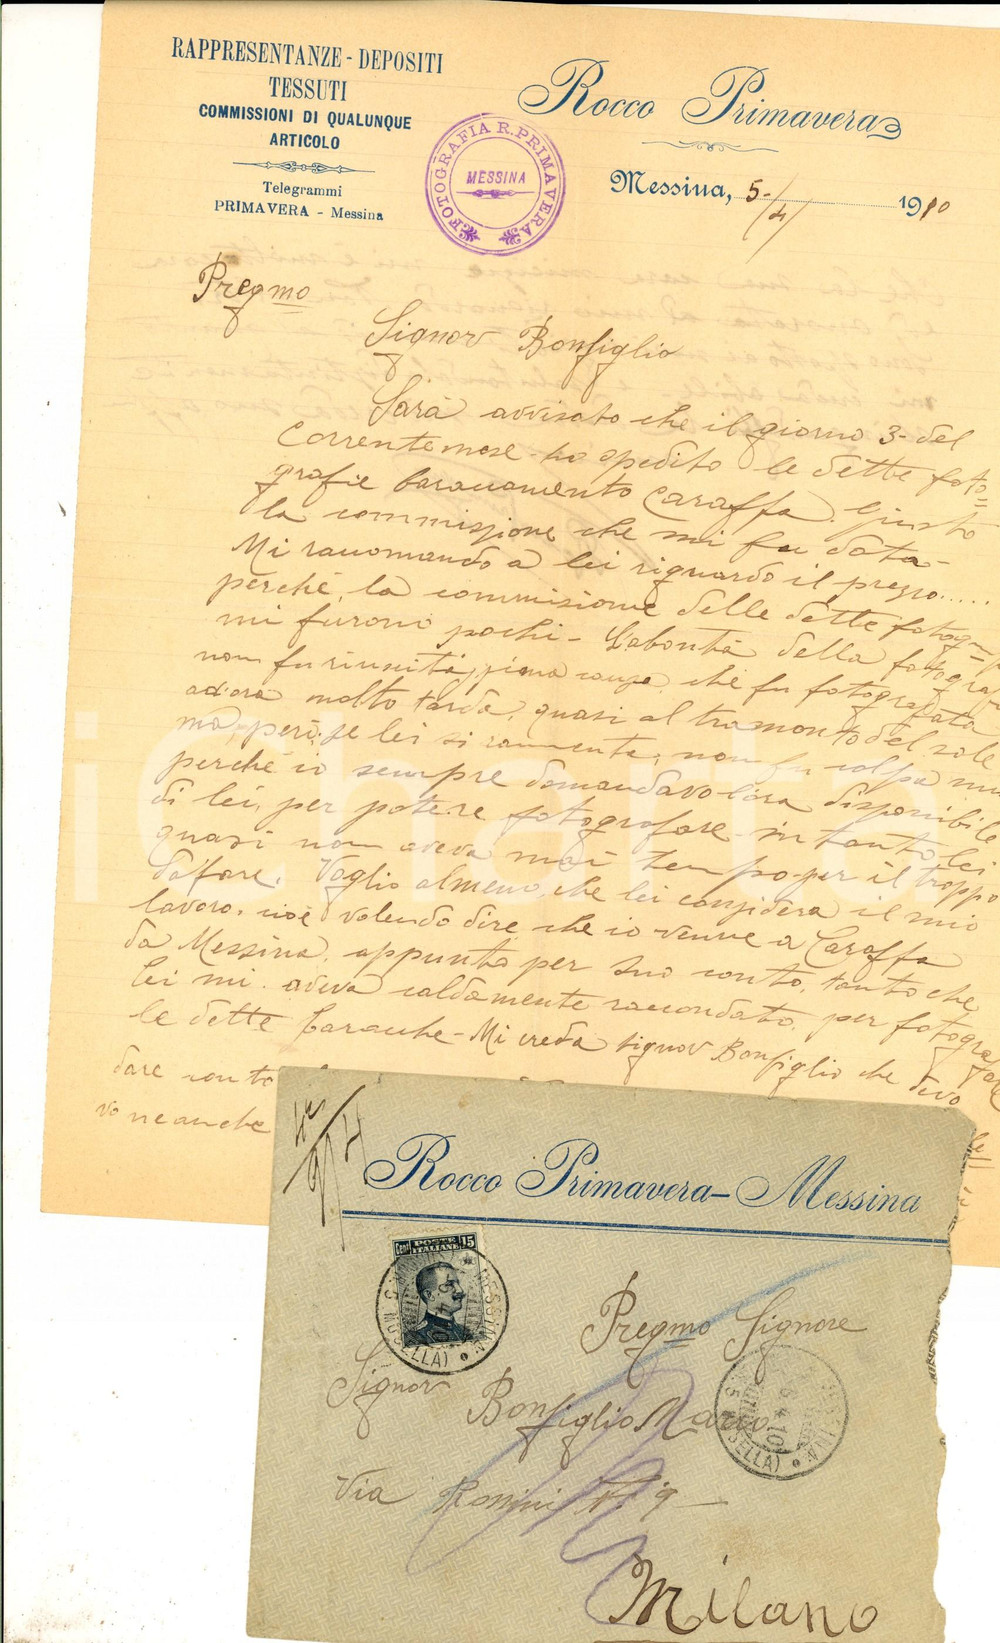 RAPPRESENTANZE - DEPOSITI
TESSUTI
COMMISSIONI DI QUALUNQUE
ARTICOLO
Telegrammi
PRIMAVERA - Messina
FOTOGRAFIA R. PRIMAVERA
MESSINA
Rocco Primavera
Messina, 5-/4/ 1910
Pregmo
Signor Bonfiglio
Sarà avvisato che il giorno 3- del
corrente mese ho spedito le dette foto=
grafie baraccamento Caraffa. Giusto
la commissione che mi fu data-
Mi raccomando a lei riguardo il prezzo.....
perché, la commisione delle dette
mi furono pochi- La bontà della
non fu riunita, prima causa, che fu fotografata
ad'ora molto tarda, quasi al tramonto del sole
ma, però, se lei si rammenta, non fu colpa mia
perché io sempre domandavo l'ora disponibile
di lei, per potere fotografare- in tanto lei
quasi non aveva mai tempo per il troppo
dafare. Voglio almeno, che lei considera il mio
lavoro, cioè volendo dire che io venne a Caraffa
da Messina, appunto per suo conto, tanto che
lei mi aveva caldamente raccondato, per fotografare
le dette baracche- Mi creda signor Bonfiglio che devo
dare conto
vo neanche
Rocco Primavera - Messina
POSTE ITALIANE
Cent 15
MESSINA
MOSELLA)
Pregmo Signore
Signor
Bonfiglio Mario
6.4.10
Via Rossini N° 9-
Milano
iCharta